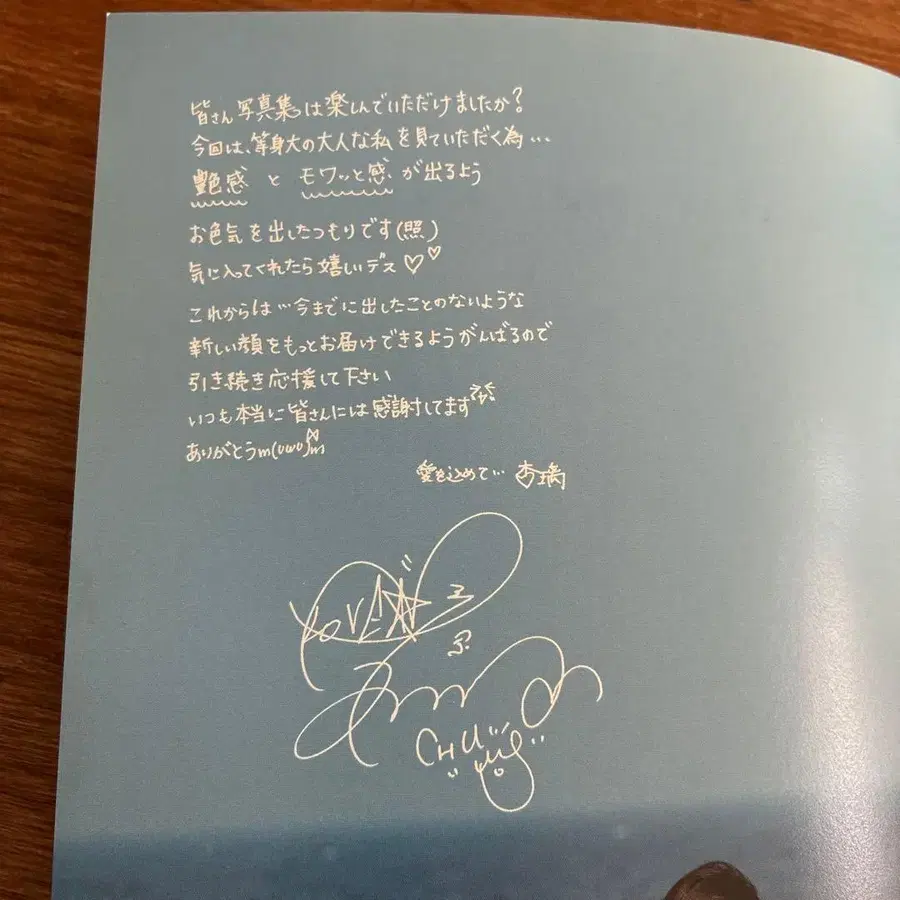 皆さん写真集は楽しんでいただけましたか?
今回は、等身大の大人な私を見ていただく為…
艶感とモワッと感が出るよう
お色気を出したつもりです(照)
気に入ってくれたら嬉しいデス♡♡
これからは…今までに出したことのないような
新しい顔をもっとお届けできるようがんばるので
引き続き応援して下さい
いつも本当に皆さんには感謝してます
ありがとうm(ωωω)m
愛を込めて… 杏璃
CHU